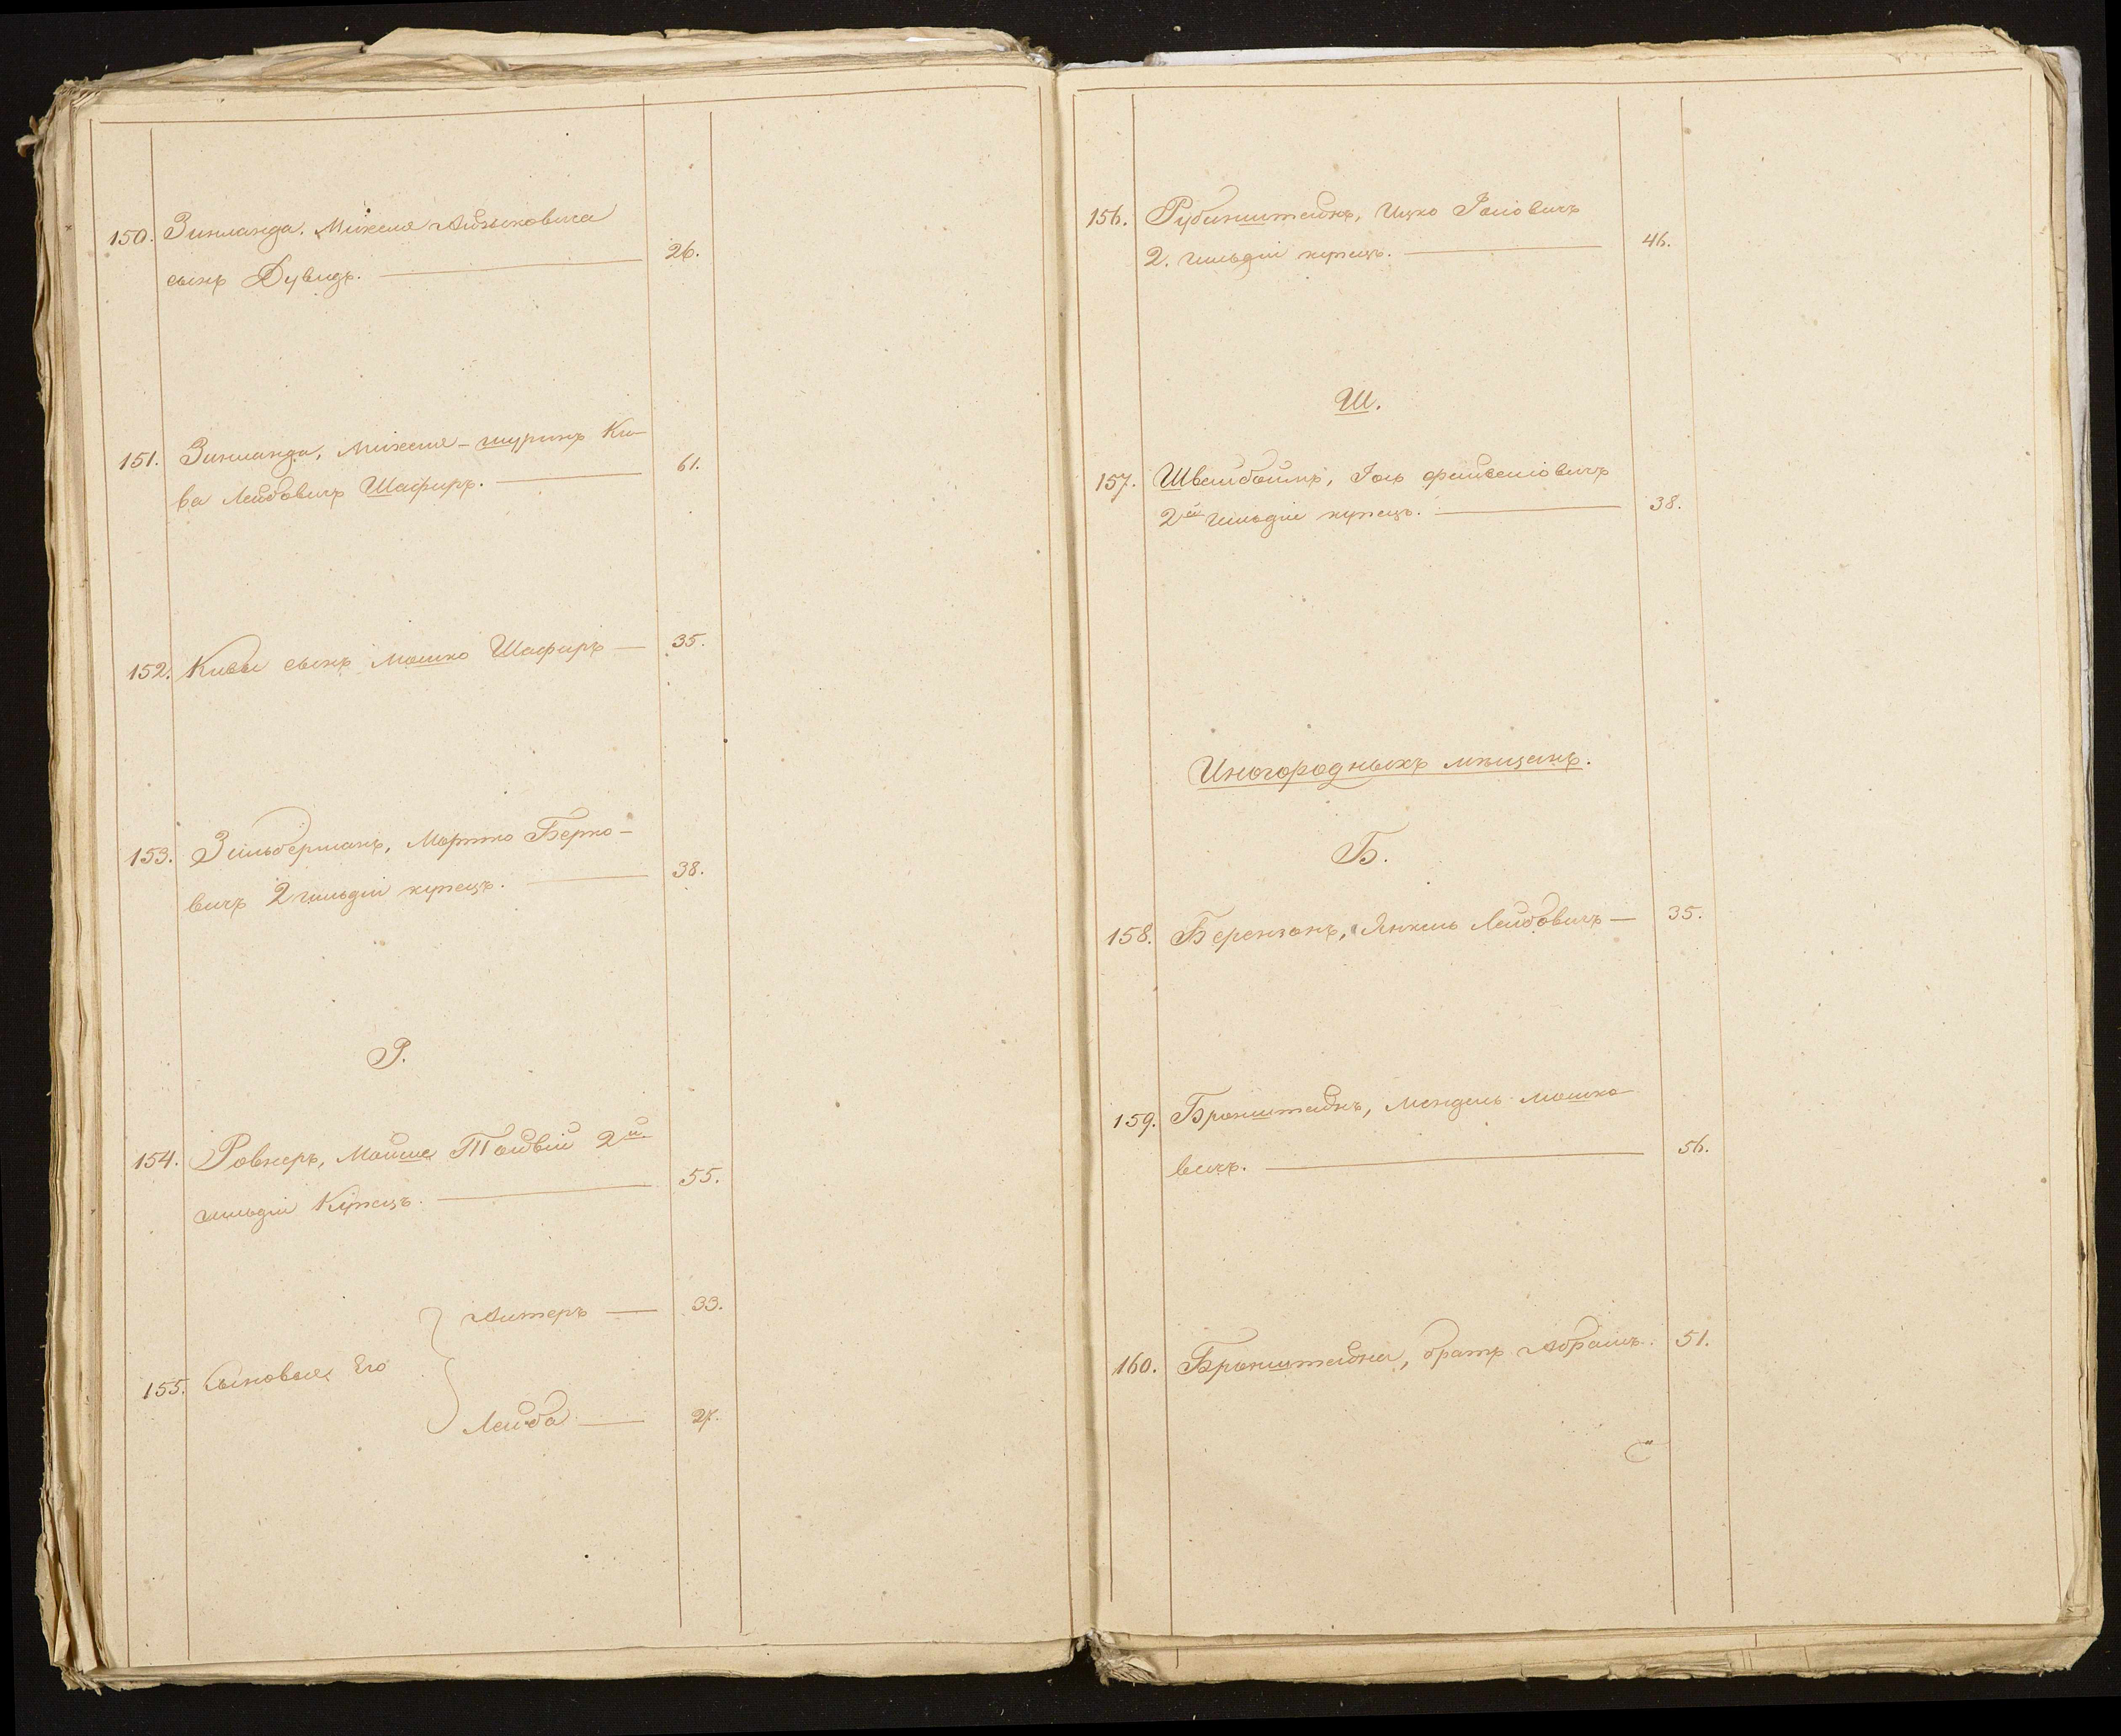 150. Зинланда. Михеля Айзыковича
сынъ Дувидъ. — 26.
151. Зинланда, Михеля - шуринъ Ки-
ва Лейбовичъ Шафиръ. — 61.
152. Кивы сынъ Мошко Шафиръ — 35.
153. Зильберманъ, Мортко Берко-
вичъ 2 гильдіи купецъ. — 38.
Р.
154. Ровнеръ, Мойше Товій 2й
гильдіи Купецъ. — 55.
155. Сыновья Его
Алтеръ — 33.
Лейба — 27.
156. Рубинштейнъ, Ицко Іоиовичъ
2. гильдіи купецъ. — 46.
Ш.
157. Швайбоймъ, Іось Фейвелювичъ
2й гильдіи купецъ. — 38.
Иногородныхъ мѣщанъ.
Б.
158. Берензонъ, Янкель Лейбовичъ — 35.
159. Бронштейнъ, Мендель Мошко
вичъ. — 56.
160. Бронштейна, братъ Абрамъ. 51.